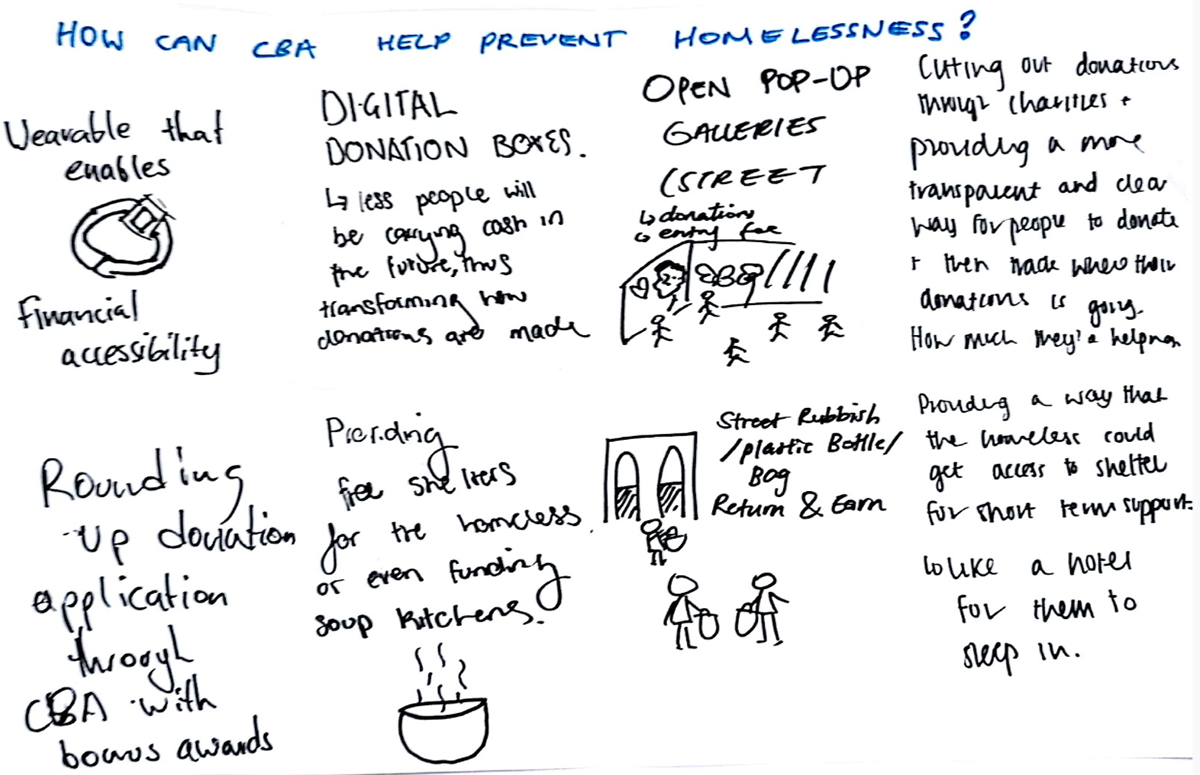 HOW CAN CBA HELP PREVENT HOMELESSNESS?
Wearable that
enables
Financial
accessibility
DIGITAL
DONATION BOXES.
↳ less people will
be carrying cash in
the future, thus
transforming how
donations are made
OPEN POP-UP
GALLERIES
(STREET
↳ donations
↳ entry fee
Cutting out donations
through charities +
providing a more
transparent and clear
way for people to donate
+ then track where their
donations is going.
How much they're helping
Rounding
-up donation
application
through
CBA with
bonus awards
Providing
free shelters
for the homeless.
or even funding
soup kitchens.
Street Rubbish
/plastic Bottle/
Bag
Return & Earn
Providing a way that
the homeless could
get access to shelter
for short term support.
↳ like a hotel
for them to
sleep in.